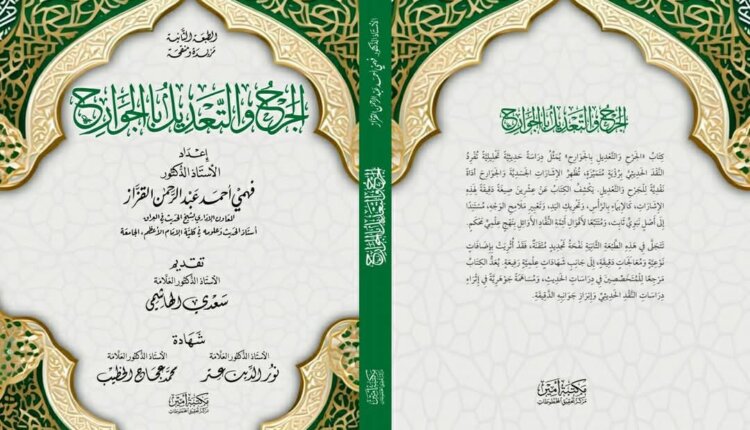 الطبعة الثانية
مزيدة ومنقحة
الجرح والتعديل بالجوارح
إعداد
الأستاذ الدكتور
فهمي أحمد عبد الرحمن القزاز
أستاذ الحديث وعلومه في كلية الإمام الأعظم، الجامعة
تقديم
الأستاذ الدكتور العلامة
سعدي الهاشمي
شهادة
الأستاذ الدكتور العلامة
نور الدين عتر
الأستاذ الدكتور العلامة
محمد عجاج الخطيب
مكتبة أمين
مركز تحقيق المخطوطات
الأستاذ الدكتور فهمي أحمد عبد الرحمن القزاز
الجرح والتعديل بالجوارح
مكتبة أمين
مركز تحقيق المخطوطات
الجرح والتعديل بالجوارح
كتاب «الجرح والتعديل بالجوارح» يمثل دراسة حديثية تحليلية تفرد
النقد الحديثي برؤية متميزة، تظهر الإشارات الجسدية والجوارح أداة
نقدية للجرح والتعديل. يكشف الكتاب عن عشرين صيغة دقيقة لهذه
الإشارات، كالإيماء بالرأس، وتحريك اليد، وتغيير ملامح الوجه، مستندا
إلى أصل نبوي ثابت، ومتتبعا لأقوال أئمة النقاد الأوائل بنهج علمي محكم.
تتجلى في هذه الطبعة الثانية نفحة تجديد متقنة، فقد أثريت بإضافات
نوعية ومعالجات دقيقة، إلى جانب شهادات علمية رفيعة. يعد الكتاب
مرجعا للمتخصصين في دراسات الحديث، ومساهمة جوهرية في إثراء
دراسات النقد الحديثي وإبراز جوانبه الدقيقة.
مكتبة أمين
مركز تحقيق المخطوطات